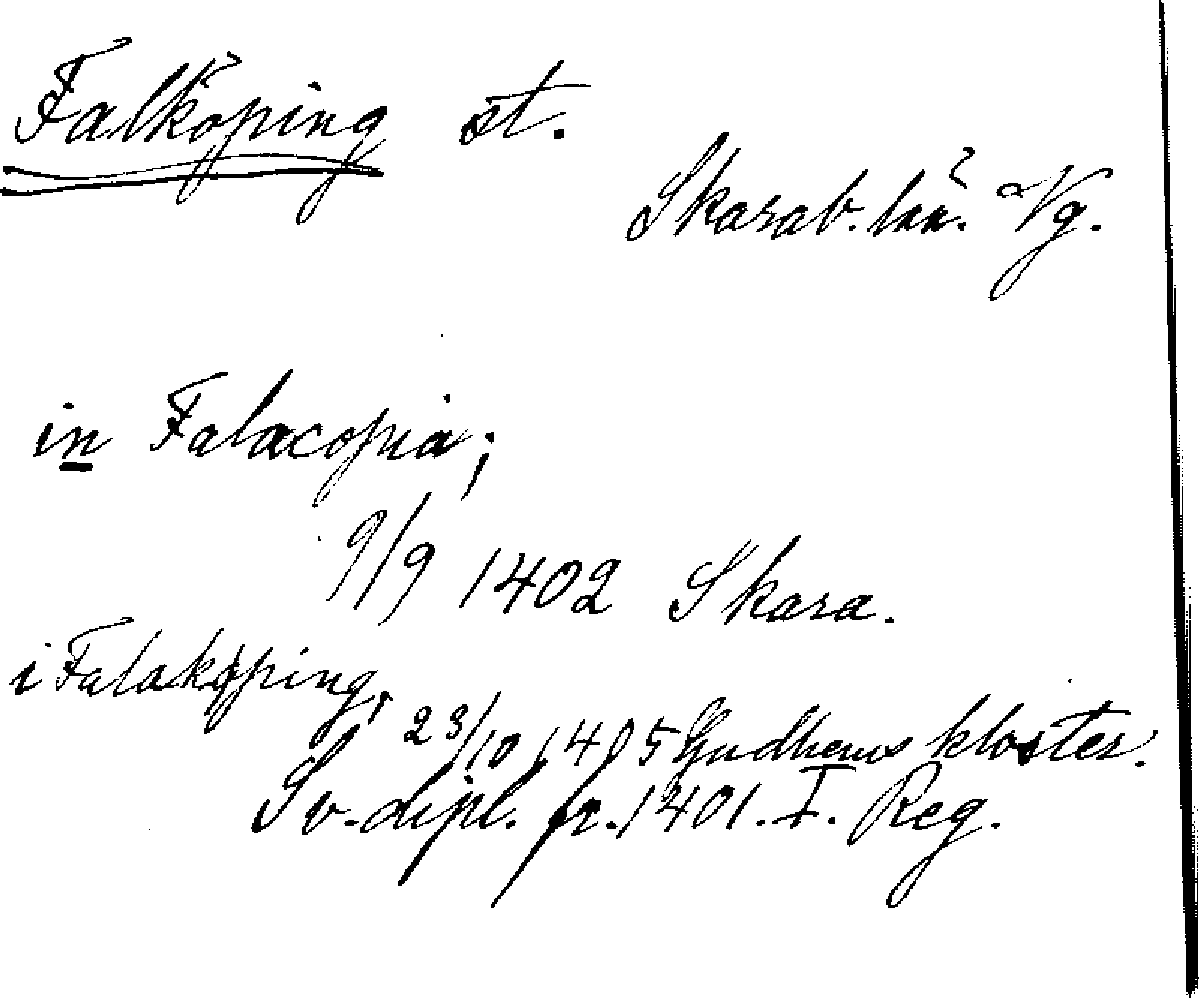 Falköping st.
Skarab. län. Vg.
in Falacopia;
9/9 1402 Skara.
i Falakøping,
23/10 1405 Gudhems kloster.
Sv. dipl. fr. 1401. I. Reg.